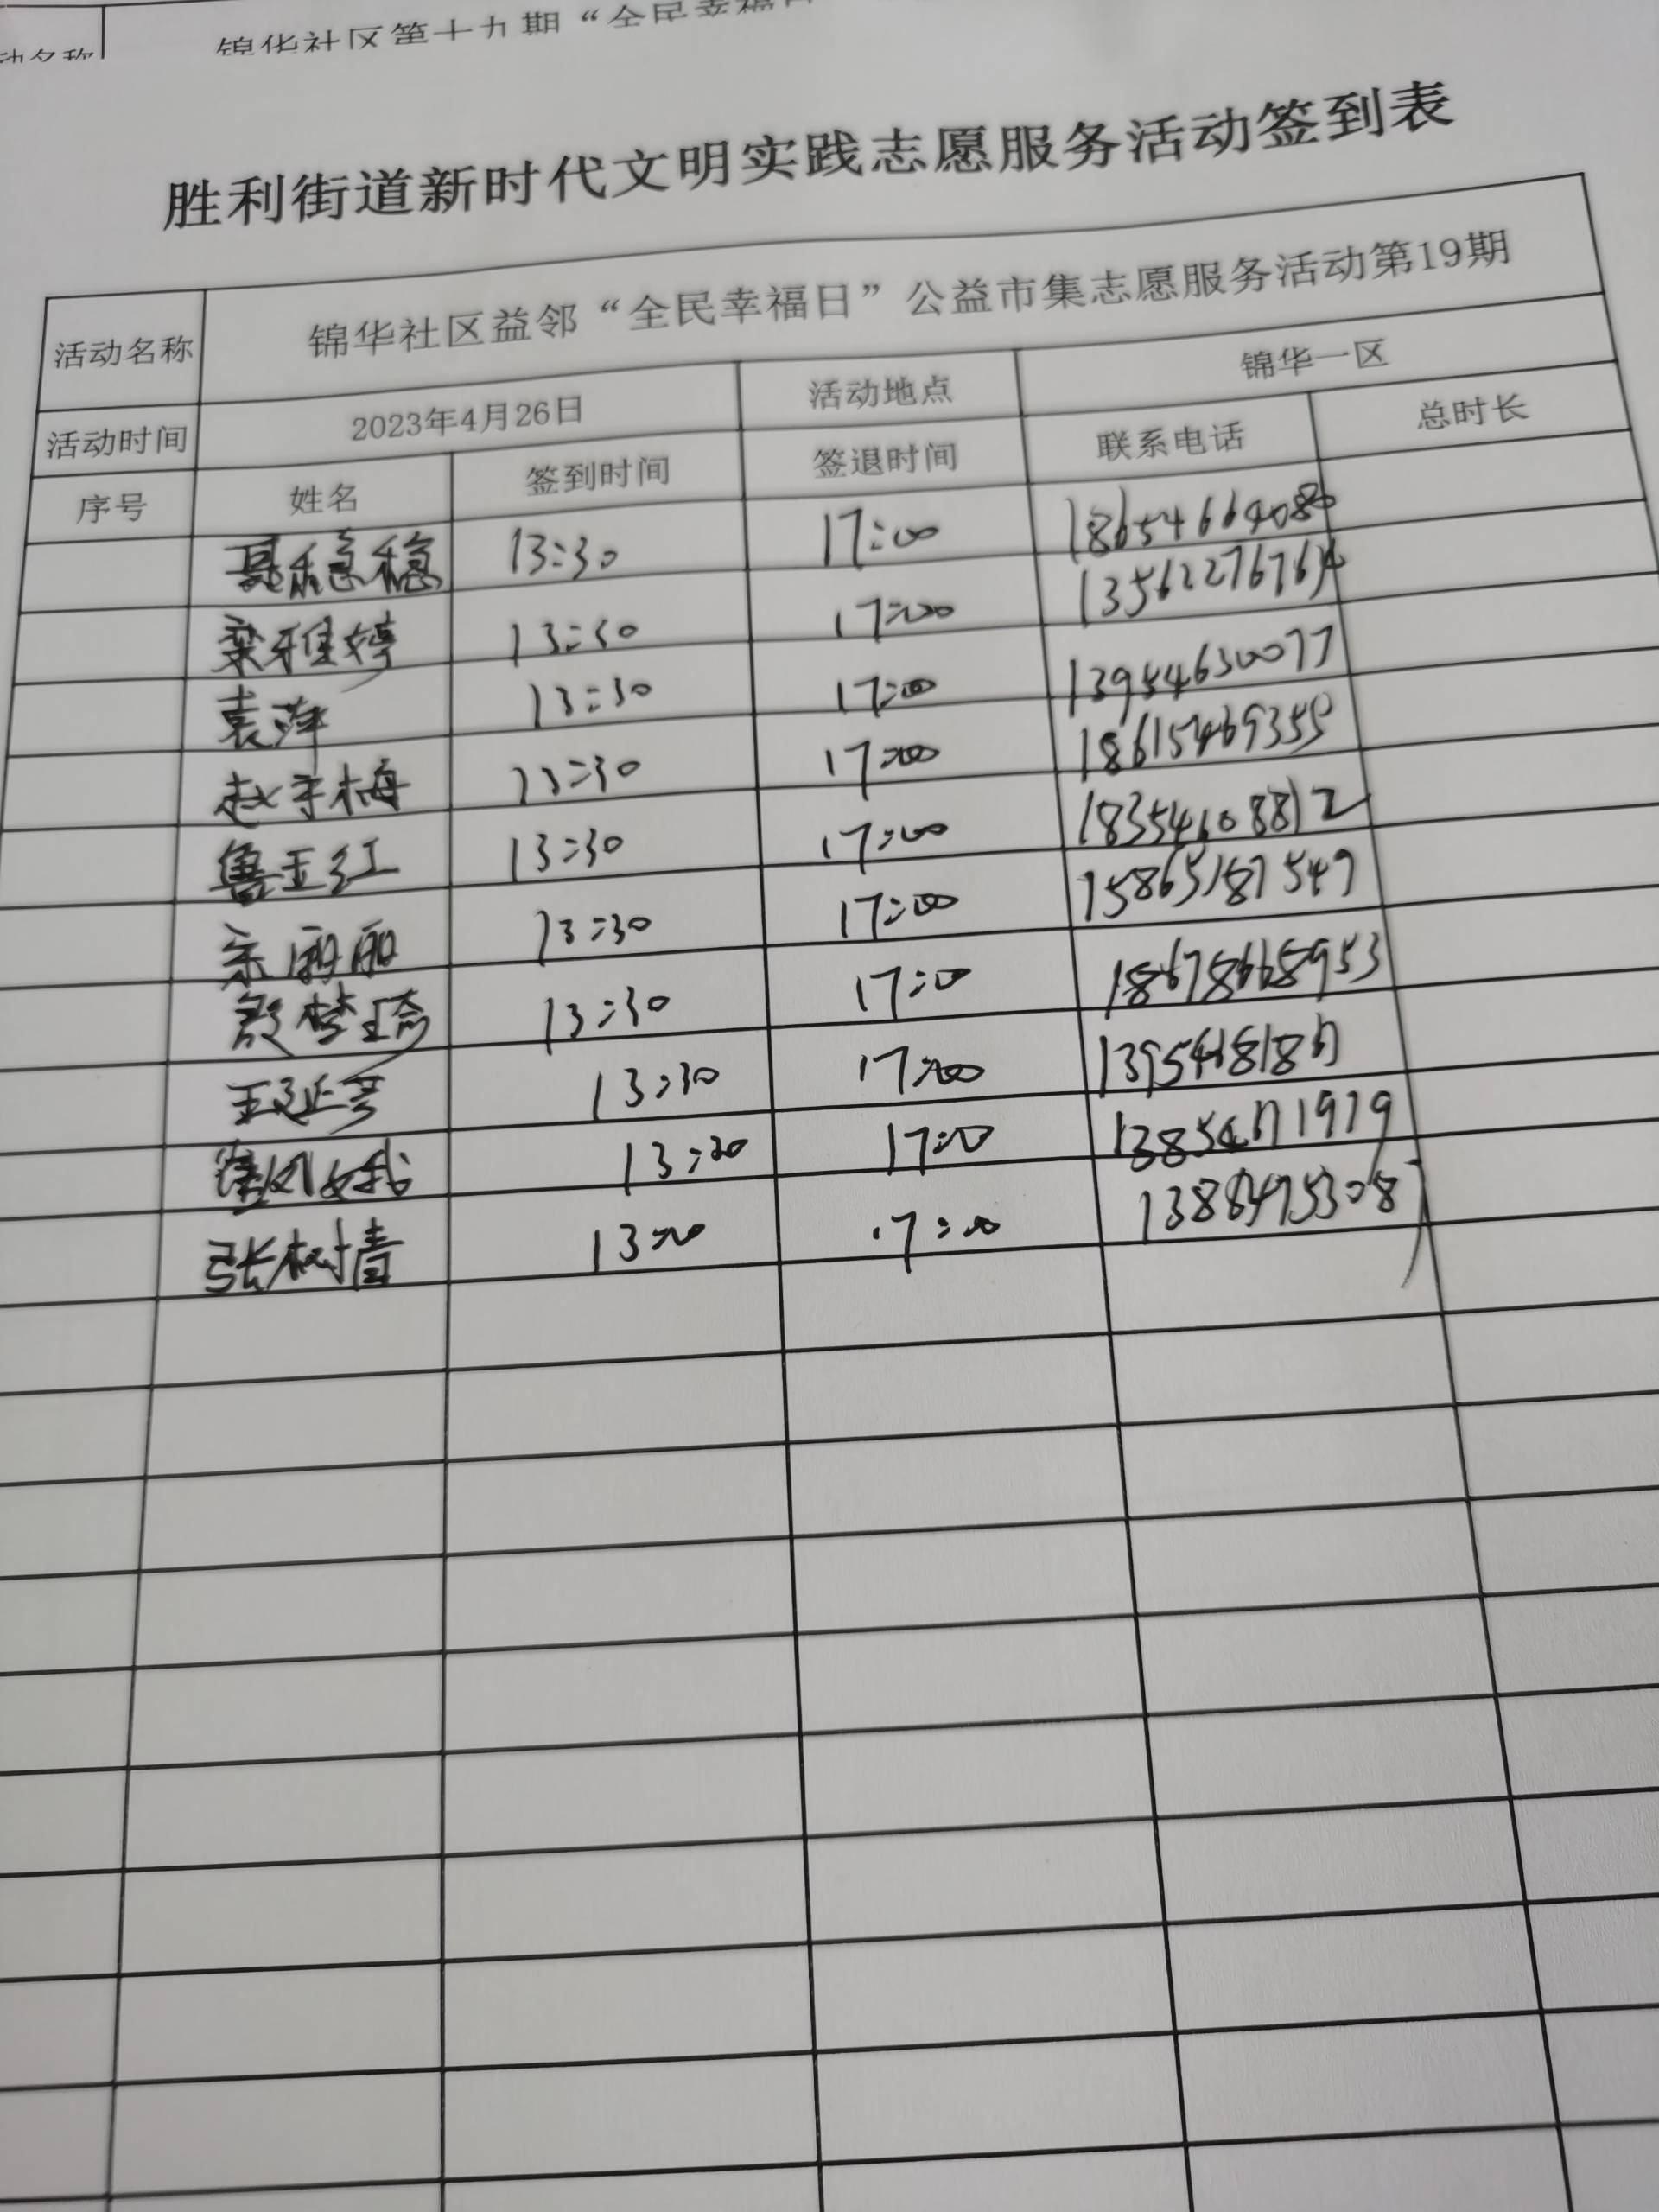 锦华社区第十九期“全民幸福日
动名称
胜利街道新时代文明实践志愿服务活动签到表
活动名称 锦华社区益邻“全民幸福日”公益市集志愿服务活动第19期
活动时间 2023年4月26日 活动地点 锦华一区
序号 姓名 签到时间 签退时间 联系电话 总时长
稳稳 13:30 17:00
栾雅婷 13:30 17:00 13562276764
袁萍 13:30 17:00 13954630077
赵宇梅 13:30 17:00 18615469355
鲁玉红 13:30 17:00 18354608812
宋丽丽 13:30 17:00 15865187549
殷梦琦 13:30 17:00 18678668953
王延彦 13:30 17:00
13:30 17:00
张树青 13:30 17:00